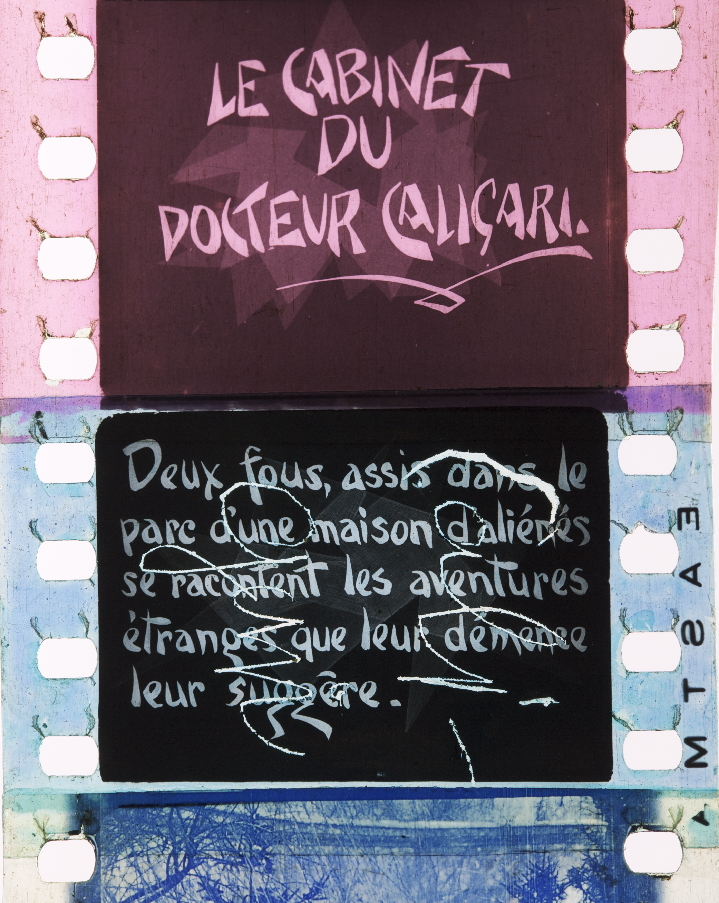 LE CABINET
DU
DOCTEUR CALIÇARI.
Deux fous, assis dans le
parc d'une maison d'aliénés
se racontent les aventures
étranges que leur démence
leur suggère.
EASTM